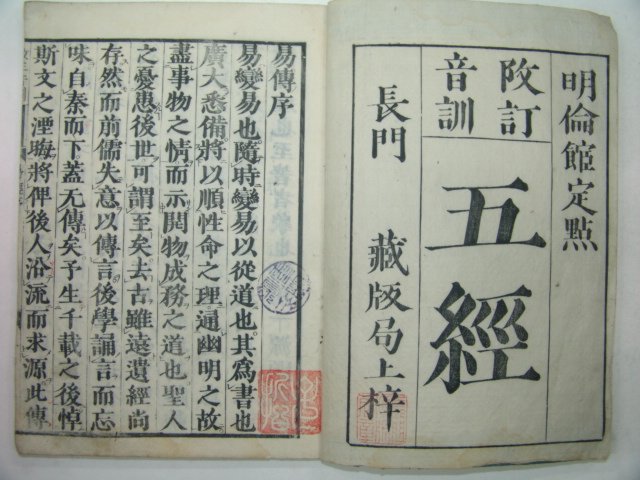 明倫館定點
改訂
音訓
五經
長門 藏版局上梓
易傳序
易變易也隨時變易以從道也其爲書也
廣大悉備將以順性命之理通幽明之故
盡事物之情而示開物成務之道也聖人
之憂患後世可謂至矣去古雖遠遺經尚
存然而前儒失意以傳言後學誦言而忘
味自秦而下蓋无傳矣予生千載之後悼
斯文之湮晦將俾後人沿流而求源此傳